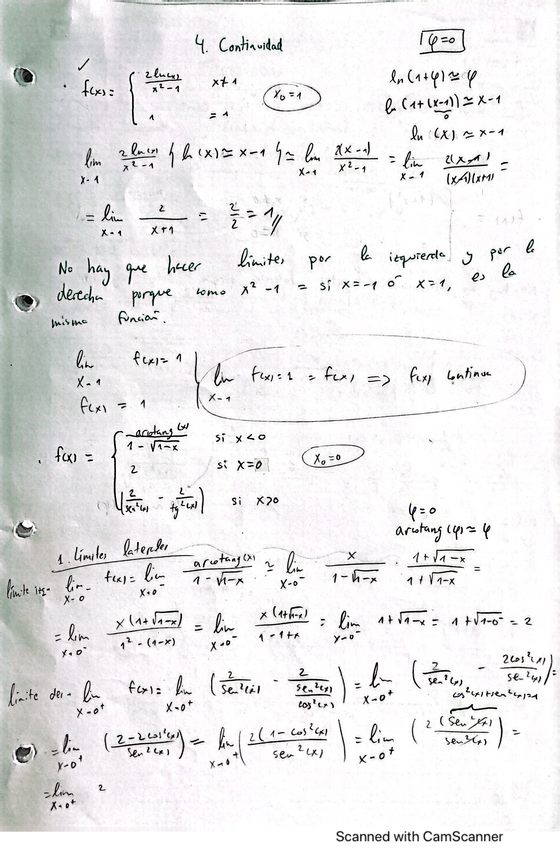 4. Continuidad
φ=0
✓
f(x) = { 2ln(x)/(x²-1) x≠1
1 = 1
x₀=1
ln(1+φ) ≃ φ
ln(1+(x-1)) ≃ x-1
0
ln(x) ≃ x-1
lim x→1 2ln(x)/(x²-1) { ln(x) ≃ x-1 } ≃ lim x→1 2(x-1)/(x²-1) = lim x→1 2(x-1)/((x-1)(x+1)) =
= lim x→1 2/(x+1) = 2/2 = 1//
No hay que hacer límites por la izquierda y por la
derecha porque como x²-1 = si x=-1 ó x=1, es la
misma función.
lim x→1 f(x)=1
f(x) = 1
lim x→1 f(x)=1 = f(x) => f(x) continua
· f(x) = { arcotang(x)/(1-√(1-x)) si x<0
2 si x=0
(2/sen²(x) - 2/tg²(x)) si x>0
x₀=0
φ=0
arcotang(φ) ≃ φ
1. Límites laterales
límite izq- lim x→0⁻ f(x) = lim x→0⁻ arcotang(x)/(1-√(1-x)) ≃ lim x→0⁻ x/(1-√(1-x)) · (1+√(1-x))/(1+√(1-x)) =
= lim x→0⁻ x(1+√(1-x))/(1²-(1-x)) = lim x→0⁻ x(1+√(1-x))/(1-1+x) = lim x→0⁻ 1+√(1-x) = 1+√(1-0⁻) = 2
límite der- lim x→0⁺ f(x) = lim x→0⁺ (2/sen²(x) - 2/(sen²(x)/cos²(x))) = lim x→0⁺ (2/sen²(x) - 2cos²(x)/sen²(x)) =
cos²(x)+sen²(x)=1
= lim x→0⁺ ((2-2cos²(x))/sen²(x)) = lim x→0⁺ (2(1-cos²(x))/sen²(x)) = lim x→0⁺ (2(sen²(x))/sen²(x)) =
= lim x→0⁺ 2
Scanned with CamScanner